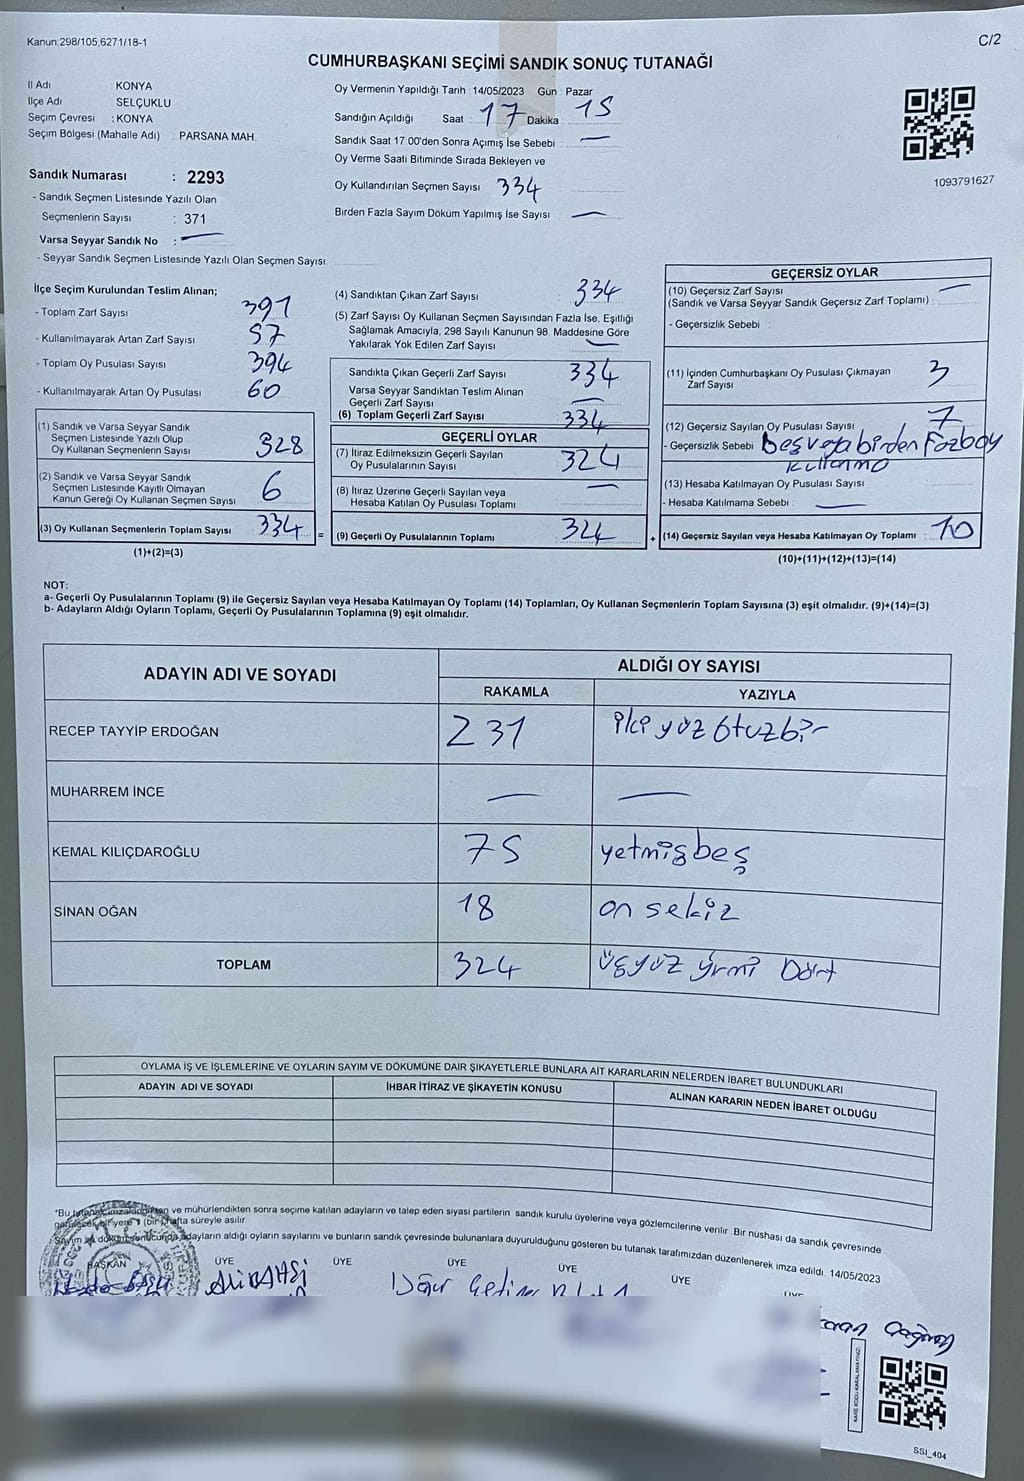 Kanun;298/105,6271/18-1
C/2
CUMHURBAŞKANI SEÇİMİ SANDIK SONUÇ TUTANAĞI
İl Adı KONYA
İlçe Adı SELÇUKLU
Seçim Çevresi : KONYA
Seçim Bölgesi (Mahalle Adı) : PARSANA MAH.
Sandık Numarası : 2293
- Sandık Seçmen Listesinde Yazılı Olan
Seçmenlerin Sayısı : 371
Varsa Seyyar Sandık No : —
- Seyyar Sandık Seçmen Listesinde Yazılı Olan Seçmen Sayısı:
Oy Vermenin Yapıldığı Tarih : 14/05/2023 Gün : Pazar
Sandığın Açıldığı Saat : 17 Dakika : 15
Sandık Saat 17:00'den Sonra Açımış İse Sebebi : —
Oy Verme Saati Bitiminde Sırada Bekleyen ve
Oy Kullandırılan Seçmen Sayısı 334
Birden Fazla Sayım Döküm Yapılmış İse Sayısı —
1093791627
İlçe Seçim Kurulundan Teslim Alınan;
- Toplam Zarf Sayısı 391
- Kullanılmayarak Artan Zarf Sayısı 57
- Toplam Oy Pusulası Sayısı 394
- Kullanılmayarak Artan Oy Pusulası 60
(1) Sandık ve Varsa Seyyar Sandık
Seçmen Listesinde Yazılı Olup
Oy Kullanan Seçmenlerin Sayısı 328
(2) Sandık ve Varsa Seyyar Sandık
Seçmen Listesinde Kayıtlı Olmayan
Kanun Gereği Oy Kullanan Seçmen Sayısı 6
(3) Oy Kullanan Seçmenlerin Toplam Sayısı 334 =
(1)+(2)=(3)
(4) Sandıktan Çıkan Zarf Sayısı 334
(5) Zarf Sayısı Oy Kullanan Seçmen Sayısından Fazla İse, Eşitliği
Sağlamak Amacıyla, 298 Sayılı Kanunun 98. Maddesine Göre
Yakılarak Yok Edilen Zarf Sayısı —
Sandıkta Çıkan Geçerli Zarf Sayısı 334
Varsa Seyyar Sandıktan Teslim Alınan
Geçerli Zarf Sayısı —
(6) Toplam Geçerli Zarf Sayısı 334
GEÇERLİ OYLAR
(7) İtiraz Edilmeksizin Geçerli Sayılan
Oy Pusulalarının Sayısı 324
(8) İtiraz Üzerine Geçerli Sayılan veya
Hesaba Katılan Oy Pusulası Toplamı —
(9) Geçerli Oy Pusulalarının Toplamı 324 +
GEÇERSİZ OYLAR
(10) Geçersiz Zarf Sayısı —
(Sandık ve Varsa Seyyar Sandık Geçersiz Zarf Toplamı) :
- Geçersizlik Sebebi :
(11) İçinden Cumhurbaşkanı Oy Pusulası Çıkmayan
Zarf Sayısı 3
(12) Geçersiz Sayılan Oy Pusulası Sayısı 7
- Geçersizlik Sebebi Beş veya birden
(13) Hesaba Katılmayan Oy Pusulası Sayısı
- Hesaba Katılmama Sebebi : —
(14) Geçersiz Sayılan veya Hesaba Katılmayan Oy Toplamı : 10
(10)+(11)+(12)+(13)=(14)
NOT:
a- Geçerli Oy Pusulalarının Toplamı (9) ile Geçersiz Sayılan veya Hesaba Katılmayan Oy Toplamı (14) Toplamları, Oy Kullanan Seçmenlerin Toplam Sayısına (3) eşit olmalıdır. (9)+(14)=(3)
b- Adayların Aldığı Oyların Toplamı, Geçerli Oy Pusulalarının Toplamına (9) eşit olmalıdır.
ADAYIN ADI VE SOYADI ALDIĞI OY SAYISI
RAKAMLA YAZIYLA
RECEP TAYYİP ERDOĞAN 231 iki yüz Otuzbir
MUHARREM İNCE — —
KEMAL KILIÇDAROĞLU 75 yetmişbeş
SİNAN OĞAN 18 on sekiz
TOPLAM 324 üçyüz yirmi Dört
OYLAMA İŞ VE İŞLEMLERİNE VE OYLARIN SAYIM VE DÖKÜMÜNE DAİR ŞİKAYETLERLE BUNLARA AİT KARARLARIN NELERDEN İBARET BULUNDUKLARI
ADAYIN ADI VE SOYADI İHBAR İTİRAZ VE ŞİKAYETİN KONUSU ALINAN KARARIN NEDEN İBARET OLDUĞU
ve mühürlendikten sonra seçime katılan adayların ve talep eden siyasi partilerin sandık kurulu üyelerine veya gözlemcilerine verilir. Bir nushası da sandık çevresinde
bir yere 1 (bir) hafta süreyle asılır.
Sayım ve döküm sonucunda adayların aldığı oyların sayılarını ve bunların sandık çevresinde bulunanlara duyurulduğunu gösteren bu tutanak tarafımızdan düzenlenerek imza edildi. 14/05/2023
BAŞKAN ÜYE ÜYE ÜYE ÜYE ÜYE
SSI_404